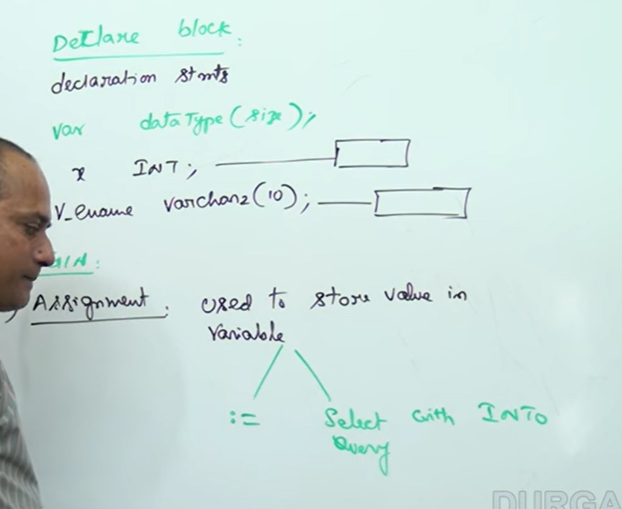 Declare block:
declaration stmts
var dataType(size);
x INT;
V_ename varchar2(10);
Assignment: used to store value in
variable
:= Select with INTO
Query
DURGA